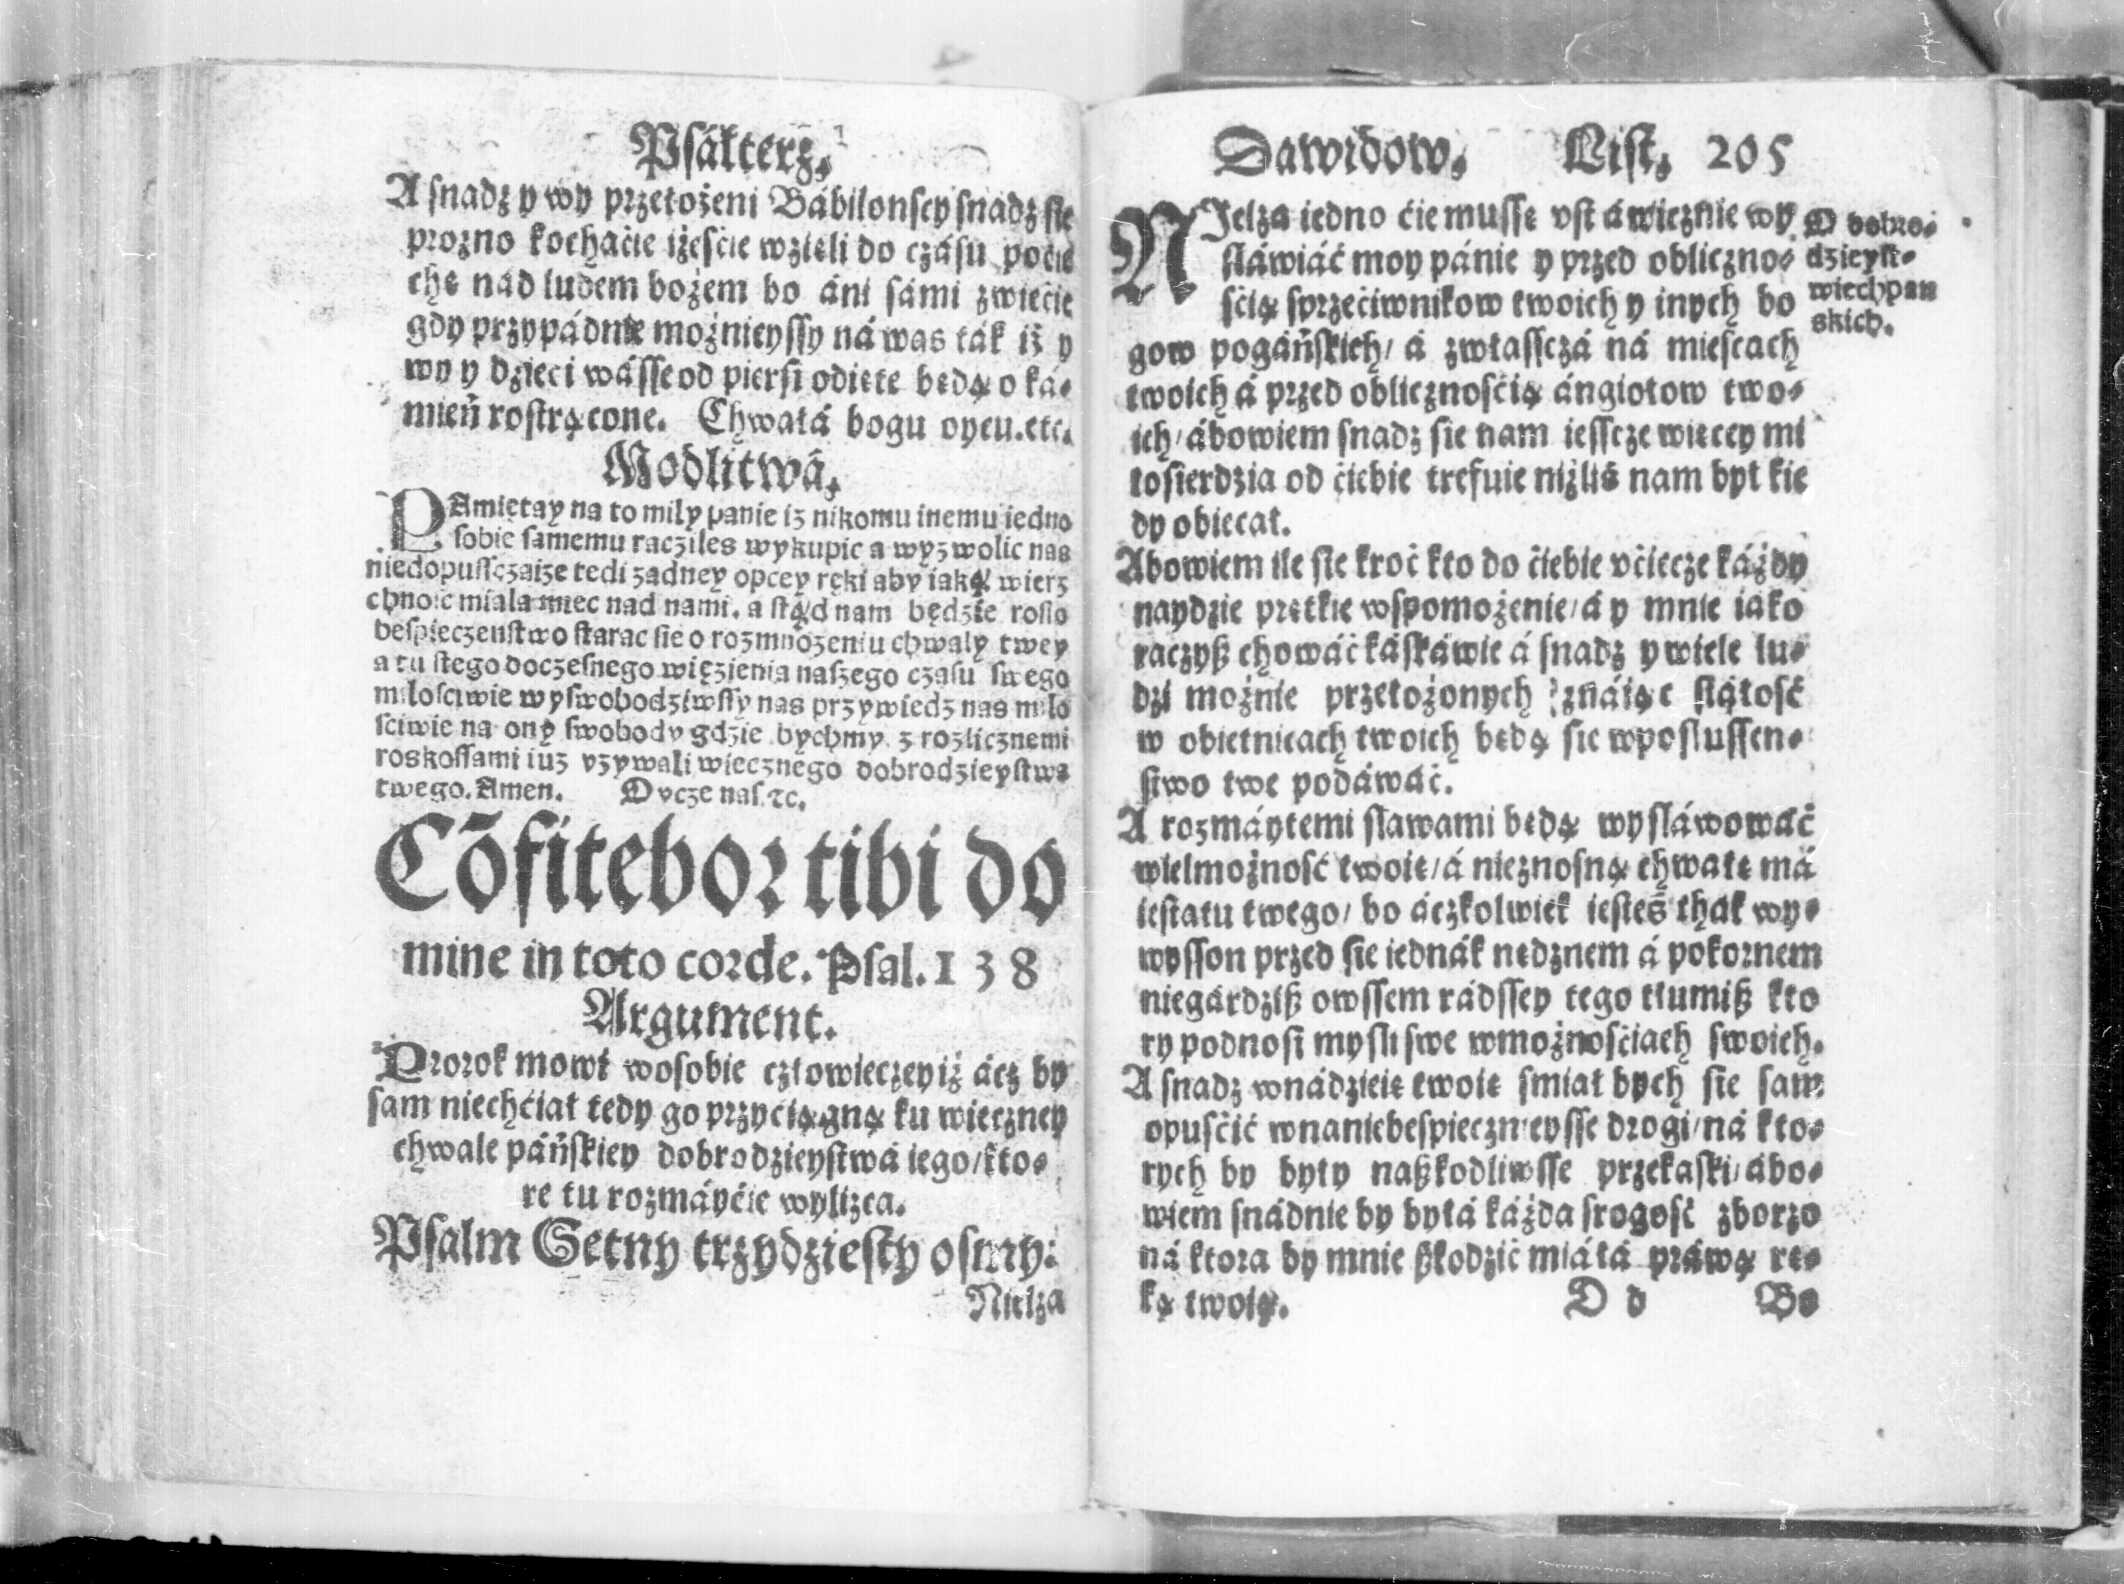 Psałterz.
A snadz y wy przełożeni Bábilonscy snadz się
prozno kochaćie iżeśćie wzięli do czásu poćie
chę nád ludem bożem bo áni sámi zwiećie
gdy przypádnie możnieyssy ná was ták iż y
wy y dzieci wásse od piersi odięte będą o ká⸗
mień rostrącone. Chwałá bogu oycu.etc.
Modlitwá.
PAmiętay na to mily panie iz nikomu inemu iedno
sobie samemu racziles wykupic a wyzwolic nas
niedopusczaize tedi zadney opcey ręki aby iaką wierz
chnosc miala miec nad nami. a stąd nam będzie roslo
bespieczenstwo starac sie o rozmnozeniu chwaly twey
a tu stego doczesnego więzienia naszego czasu swego
milosciwie wyswobodziwssy nas przywiedz nas milo
sciwie na ony swobody gdzie bychmy z rozlicznemi
roskossami iuz vzywali wiecznego dobrodzieystwa
twego. Amen. Oycze nas. ⁊c.
Cōfitebor tibi do
mine in toto corde. Psal. 138
Argument.
Prorok mowi wosobie człowieczey iż ácz by
sam niechćiał tedy go przyćiągną ku wieczney
chwale páńskiey dobrodzieystwá iego/kto⸗
re tu rozmáyćie wylizca.
Psalm Setny trzydziesty osmy:
Nielza
Dawidow. List. 205
NIelza iedno ćie mussę vstáwicznie wy
sláwiáć moy pánie y przed obliczno⸗
śćią sprzećiwnikow twoich y inych bo
gow pogáńskich/ á zwłassczá ná mieścach
twoich á przed oblicznośćią ángiołow two⸗
ich/ ábowiem snadz sie nam iesscze więcey mi
łosierdzia od ćiebie trefuie niżliś nam był kie
dy obiecał.
O dobro⸗
dzieyst⸗
wiech pan
skich.
Abowiem ile sie kroć kto do ćiebie vćiecze káżdy
naydzie prętkie wspomożenie/á y mnie iako
raczyß chowáć łáskáwie á snadz y wiele lu⸗
dzi możnie przełożonych znáiąc stałość
w obietnicach twoich będą sie wposlussen⸗
stwo twe podáwáć.
A rozmáytemi slawami będą wysláwowáć
wielmożność twoię/á nieznosną chwałę má
iestatu twego/ bo áczkolwiek iesteś thak wy⸗
wysson przed sie iednák nędznem á pokornem
niegárdziß owssem rádssey tego tłumiß kto
ry podnosi mysli swe wmożnośćiach swoich.
A snadz wnádzieię twoię smiał bych sie sam
opuśćić wnaniebespiecznieysse drogi/ná kto⸗
rych by były naßkodliwsse przekaski/ábo⸗
wiem snádnie by byłá káżda srogość zborzo
ná ktora by mnie ßkodzić miáłá práwą rę⸗
ką twoią.
D d Bo